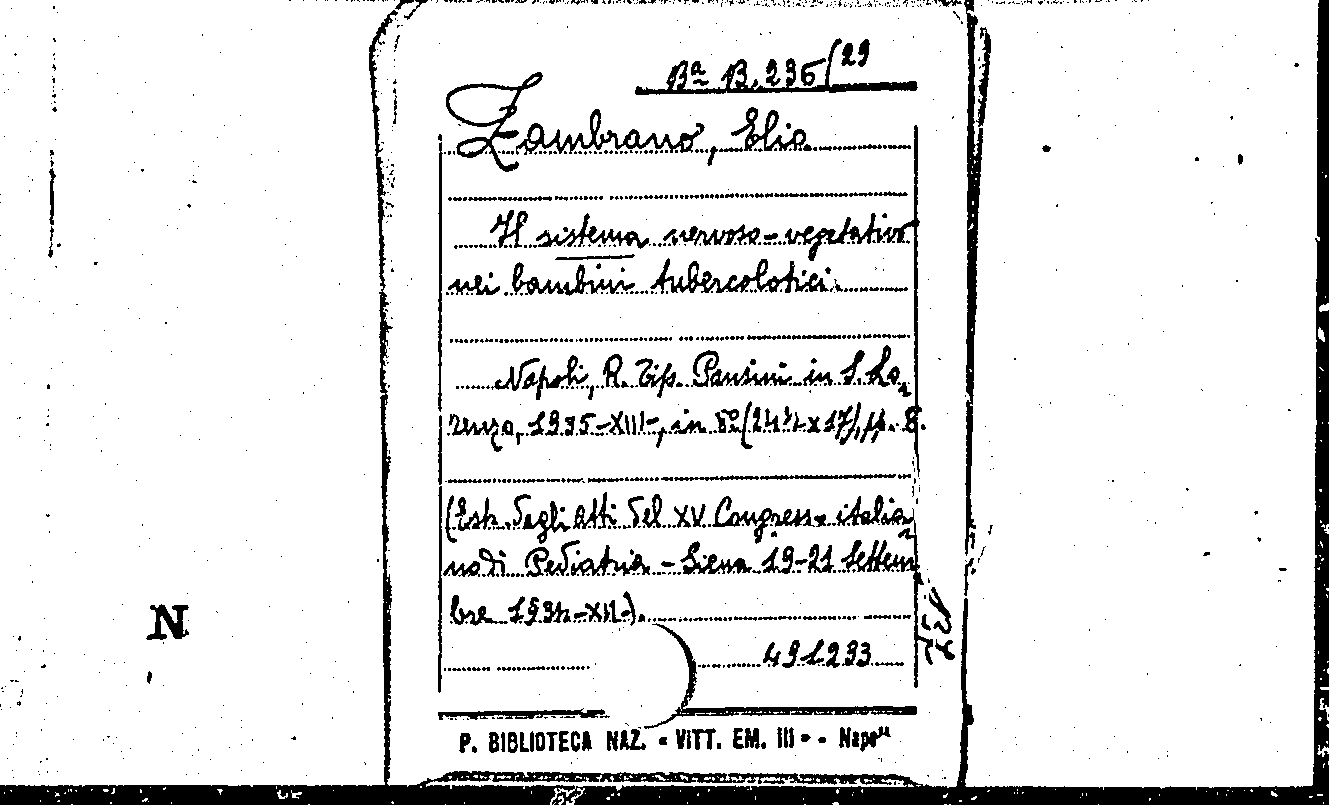 Bª B. 236(29
Zambrano, Elio
Il sistema nervoso-vegetativo
nei bambini tubercolotici.
Napoli, R. Tip. Pansini in S. Lo-
renzo, 1935-XIII-, in 8º (24½ x 17), pp. 8.
(Estr. degli Atti del XV Congresso italia-
no di Pediatria - Siena 19-21 Settem
bre 1934-XII-).
491293
N
P. BIBLIOTECA NAZ. « VITT. EM. III » - Napoli